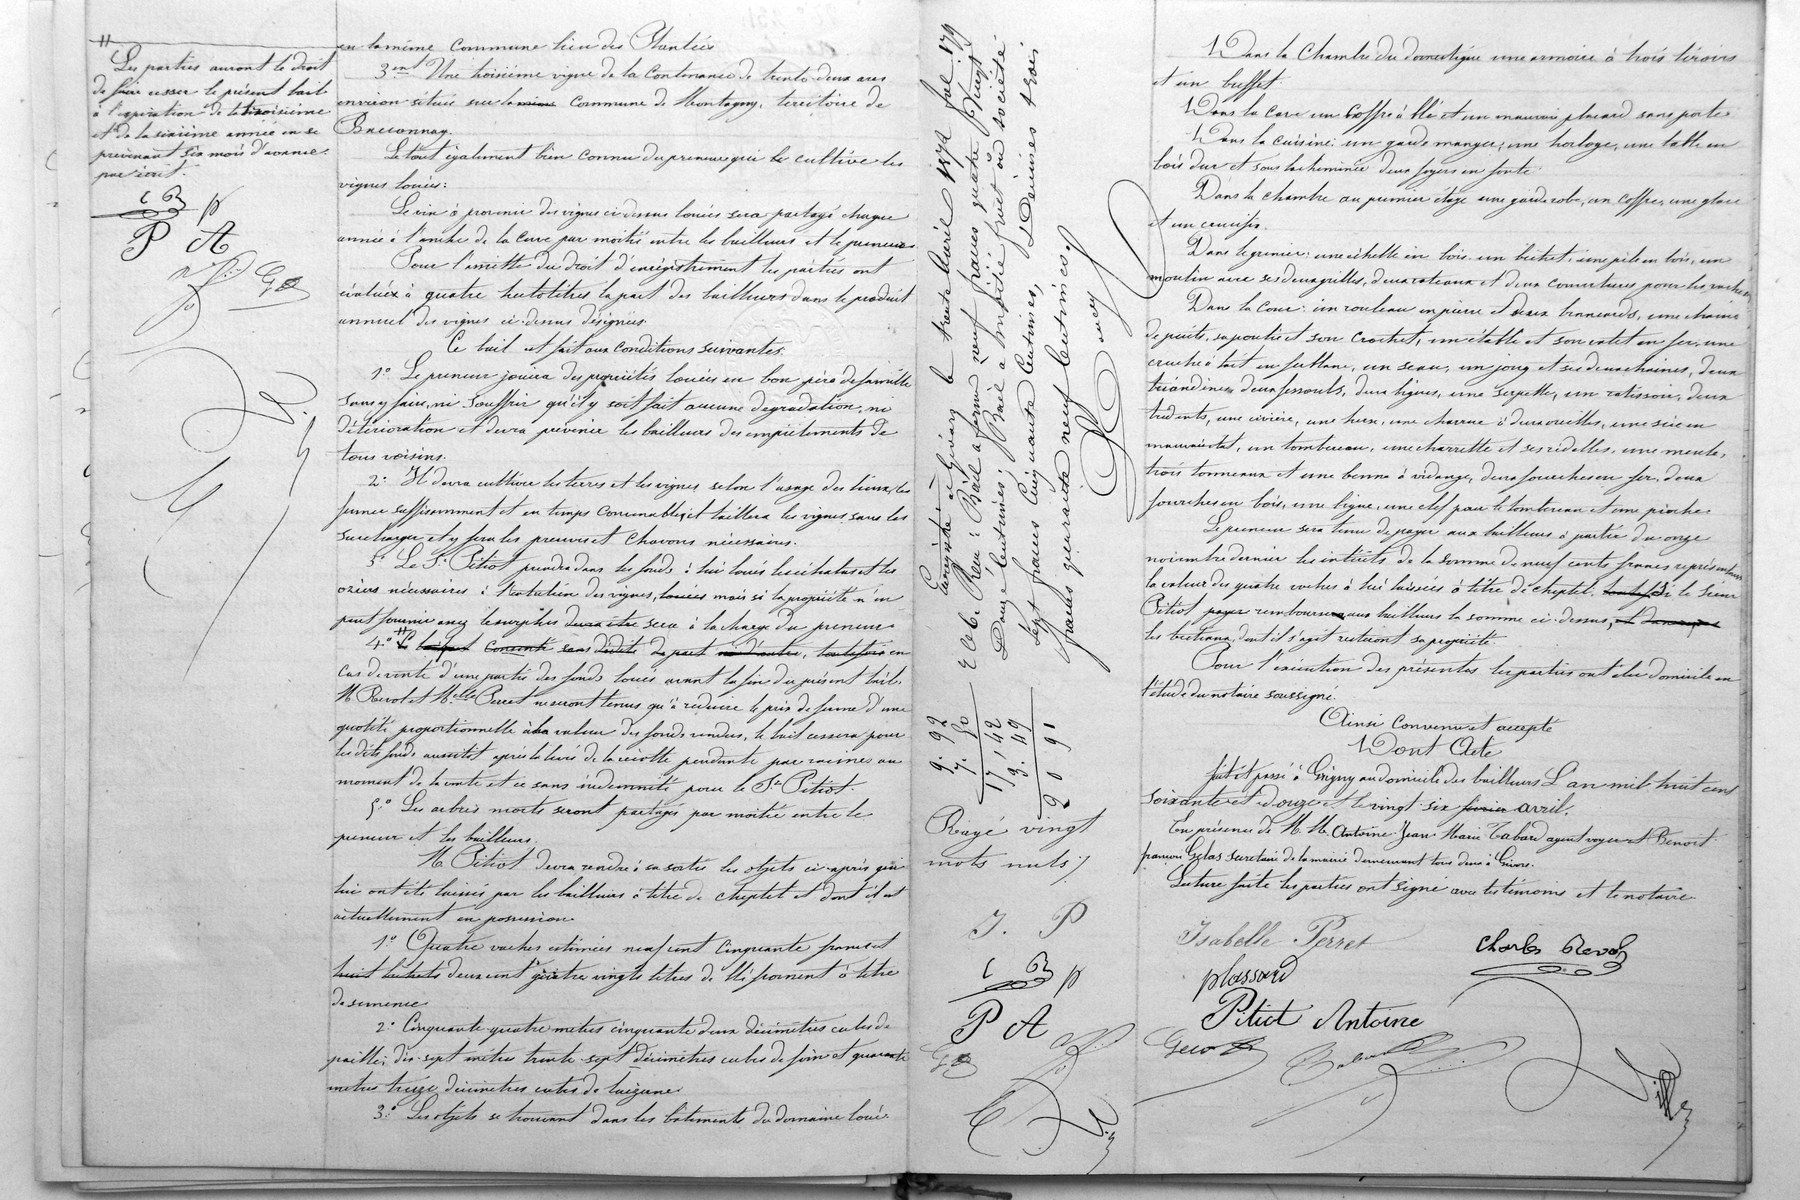 "
Les parties auront le droit
de faire cesser le présent bail
à l'expiration de la troisième
et de la sixième année en se
prévenant six mois d'avance
par écrit.
C R p
P A
en la même Commune lieu des Plantées
3ent Une troisième vigne de la Contenance de trente deux ares
environ située sur la même Commune de Montagny, territoire de
Bassonnay.
Le tout également bien connu du preneur qui le cultive les
vignes louées:
Le vin à provenir des vignes ci-dessus louées sera partagé chaque
année à l'anche de la Cuve par moitié entre les bailleurs et le preneur.
Pour l'assiette du droit d'enregistrement les parties ont
évaluée à quatre hectolitres la part des bailleurs dans le produit
annuel des vignes ci-dessus désignées.
Ce bail est fait aux Conditions suivantes.
1° Le preneur jouira des propriétés louées en bon père de famille
sans y faire, ni Souffrir qu'il y soit fait aucune dégradation, ni
détérioration et devra prévenir les bailleurs des empiètements de
tous voisins.
2° Il devra cultiver les terres et les vignes selon l'usage des lieux, les
fumer suffisamment et en temps Convenable, et taillera les vignes sans les
surcharger et y fera les preuves et Chavons nécessaires.
3° Le Sr Pitiot prendra dans les fonds à lui loués les échalas et les
osiers nécessaires à l'entretien des vignes, louées mais si la propriété n'en
peut fournir assez le surplus devra être sera à la charge du preneur
4° " Ce bail est Consenti sans dédite de part ni d'autre, toutefois en
Cas de vente d'une partie des fonds loués avant la fin du présent bail,
M. Revol et Melle Perret ne seront tenus qu'à réduire le prix de ferme d'une
quotité proportionnelle à la valeur des fonds vendus, le bail cessera pour
les dits fonds aussitôt après la levée de la récolte pendante par racines au
moment de la vente et ce sans indemnité pour le Sr Pitiot.
5° Les arbres morts seront partagés par moitié entre le
preneur et les bailleurs.
M. Pitiot devra rendre à sa sortie les objets ci-après qui
lui ont été laissés par les bailleurs à titre de cheptel et dont il est
actuellement en possession
1° Quatre vaches estimées neuf cent Cinquante francs et
deux cent quatre vingts litres de blé froment à titre
de semence
2° Cinquante quatre mètres cinquante deux décimètres cubes de
paille; dix-sept mètres trente-sept décimètres cubes de foin et quarante
mètres treize décimètres cubes de luzerne.
3° Les objets se trouvant dans les bâtiments du domaine loué.
Enregistré à Givors le trente Avril 1872 fol. 179
r. C. 6. Reçu: Bail à ferme neuf francs quatre vingt
Douze Centimes; Bail à moitié fruit ou société
Sept francs Cinquante Centimes, Décimes trois
francs quarante neuf Centimes.
9. 92
7. 50
17, 42
3. 49
20 91
Rayé vingt
mots nuls
J. P
C R p
P A
Dans la Chambre du domestique une armoire à trois tiroirs
et un buffet.
Dans la Cave un coffre à blé et un mauvais placard sans porte.
Dans la cuisine: un garde manger, une horloge, une table en
bois dur et sous la cheminée deux foyers en fonte.
Dans la chambre au premier étage une garde robe, un coffre, une glace
et un crucifix.
Dans le grenier: une échelle en bois, un bichet, une pile en bois, un
moulin avec ses deux grilles, deux rateaux et deux Couvertures pour les vaches
Dans la Cour: un rouleau en pierre et deux brancards, une chaine
de puits, sa poulie et son Crochet, un établi et son valet en fer, une
cruche à lait en fer blanc, un seau, un joug et ses deux chaines, deux
triandines, deux fessouls, deux bigues, une serpette, un ratissoir, deux
tridents, une civière, une herse, une charrue à deux oreilles, une scie en
mauvais état, un tombereau, une charrette et ses ridelles, une meule,
trois tonneaux et une benne à vidange, deux fourches en fer, deux
fourches en bois, une bigue, une clef pour le tombereau et une pioche.
Le preneur sera tenu de payer aux bailleurs à partir du onze
novembre dernier les intérêts de la somme de neuf cents francs représentant
la valeur des quatre vaches à lui laissées à titre de cheptel. toutefois Si le Sieur
Pitiot payer remboursera aux bailleurs la somme ci-dessus,
les bestiaux, dont il s'agit resteront sa propriété.
Pour l'exécution des présentes les parties ont élu domicile en
l'étude du notaire soussigné.
Ainsi Convenu et accepté
Dont Acte
fait et passé à Grigny au domicile des bailleurs L'an mil huit cent
soixante et douze et le vingt-six février avril,
En présence de M. M. Antoine Jean Marie Tabard agent voyer et Benoit
françois Gelas Secrétaire de la mairie demeurant tous deux à Givors.
Lecture faite les parties ont signé avec les témoins et le notaire
Isabelle Perret
Charles Revol
plassard
Pitiot Antoine